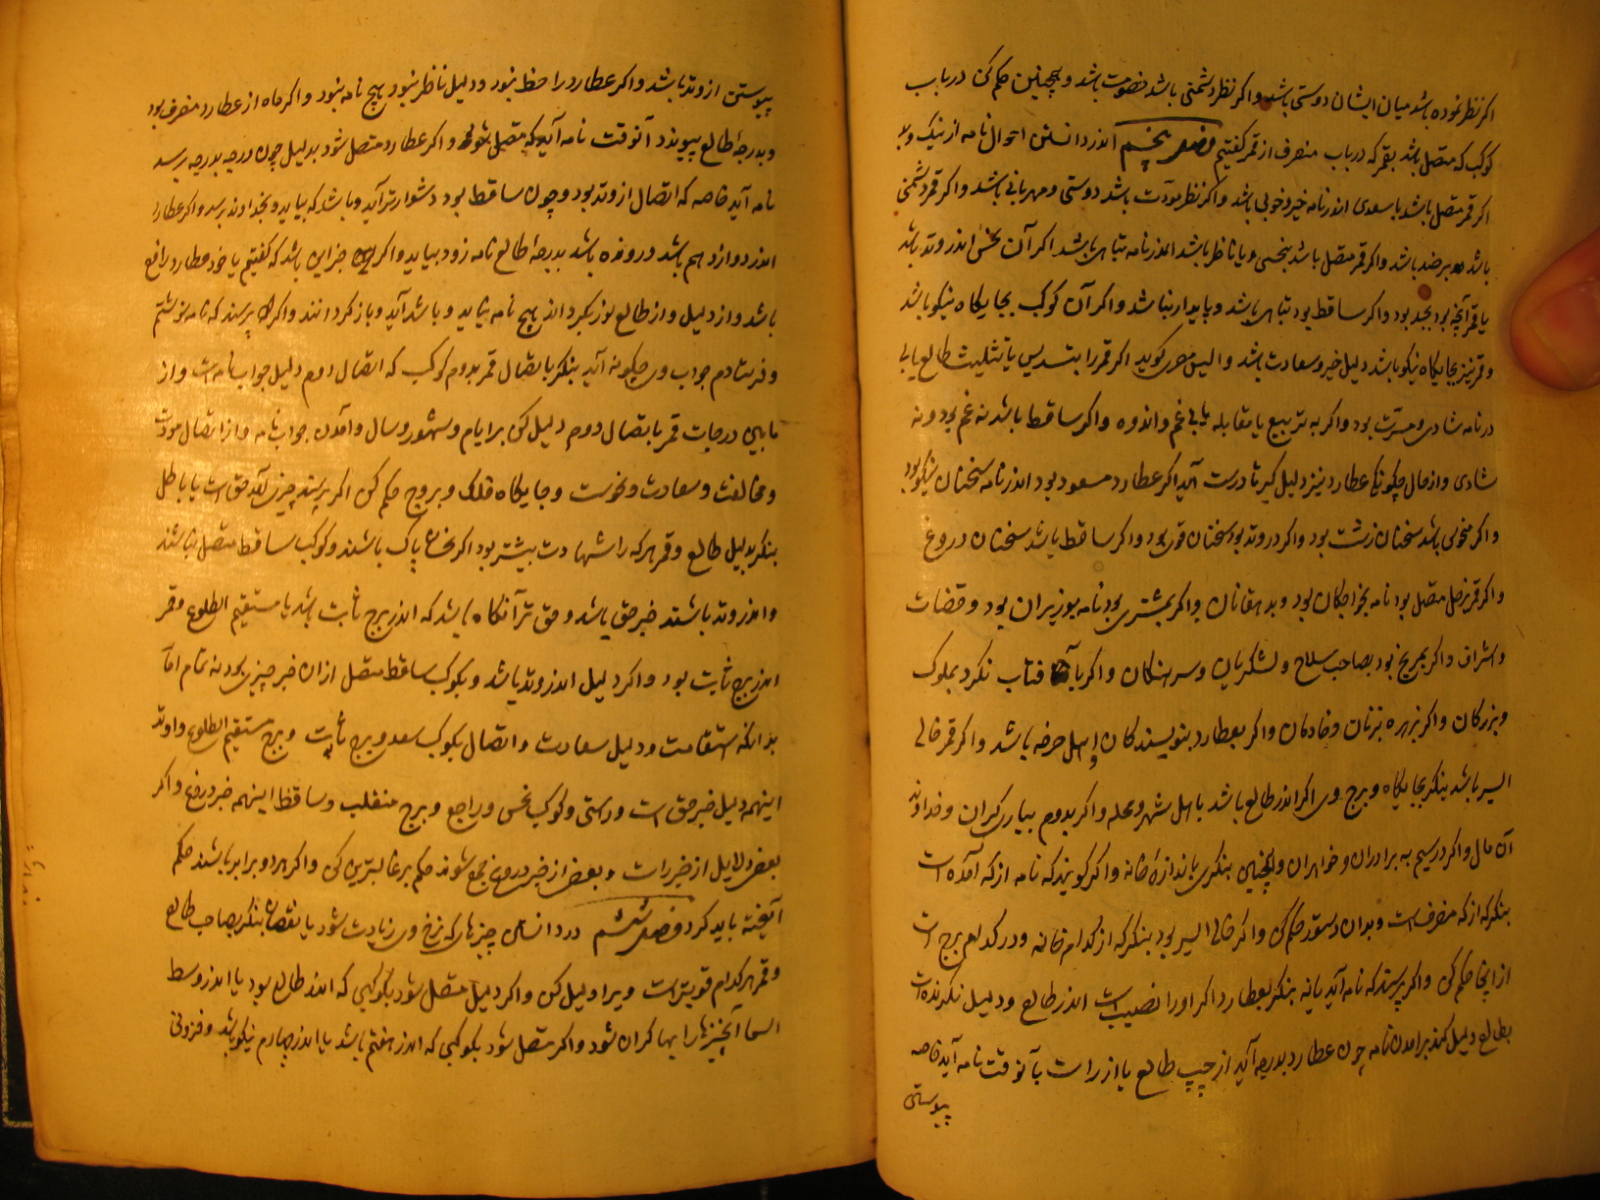 اکر نظر نموده باشد میان ایشان دوستی باشد و اکر نظر دشمنی باشد خصومت باشد و همچنین حکم کن در باب
کوکب که متصل باشد بقمر که در باب منصرف از قمر کفتیم فصل پنجم اندر دانستن احوال نامه از نیک و بد
اکر قمر متصل باشد با سعدی اندر نامه خیر و خوبی باشد و اکر نظر مودت باشد دوستی و مهربانی باشد و اکر قمر دشمنی
باشد بر ضد باشد و اکر قمر متصل باشد بنحسی و یا ناظر باشد اندر نامه تباهی باشد اکر آن نحس اندر وتد باشد
یا قمر آنچه بود بجد بود و اکر ساقط بود تباهی باشد و پایدار نباشد و اکر آن کوکب بجایکاه نیکو باشد
و قمر نیز بجایکاه نیکو باشد دلیل خیر و سعادت باشد و الیس مصری کوید اکر قمر را بتسدیس یا تثلیث طالع یابی
در نامه شادی و مسرت بود و اکر به تربیع یا مقابله یابی غم و اندوه و اکر ساقط باشد نه غم بود و نه
شادی و از حال چکونکی عطارد نیز دلیل کیر تا درست آید اکر عطارد مسعود بود اندر نامه سخنان نیکو بود
و اکر منحوس باشد سخنان زشت بود و اکر در وتد بود سخنان قوی بود و اکر ساقط باشد سخنان دروغ
و اکر قمر بزحل متصل بود نامه بخواجکان بود و بدهقانان و اکر بمشتری بود نامه بوزیران بود و قضات
و اشراف و اکر بمریخ بود بصاحب سلاح و لشکریان و سرهنکان و اکر بآفتاب نکرد بملوک
و بزرکان و اکر بزهره بزنان و خادمان و اکر بعطارد بنویسندکان و اهل حرفه باشد و اکر قمر خالی
السیر باشد بنکر بجایکاه و برج وی اکر اندر طالع باشد باهل شهر و محله و اکر بدوم بیاری کران و خداوند
آن مال و اکر در سیم به برادران و خواهران و همچنین بنکری باندازهٔ خانه و اکر کویند که نامه از که آمده است
بنکر که از که منصرفست و بدان دستور حکم کن و اکر خالی السیر بود بنکر که از کدام خانه و در کدام برج است
از انجا حکم کن و اکر پرسند که نامه آید یا نه بنکر بعطارد اکر او را نصیب است اندر طالع و دلیل نکرنده است
بطالع دلیل کند برآمدن نامه چون عطارد بدرجه آید از چپ طالع یا از راست بآنوقت نامه آید خاصه
پیوستن
پیوستن از وتد باشد و اکر عطارد را حظ نبود و دلیل ناظر نبود هیچ نامه نبود و اکر ماه از عطارد منصرف بود
و بدرجهٔ طالع پیوندد آنوقت نامه آید که متصل شود و اکر عطارد متصل شود بدلیل چون درجه بدرجه برسد
نامه آید خاصه که اتصال از وتد بود و چون ساقط بود دشوارتر آید و باشد که بیاید و بخداوند نرسد و اکر عطارد را
اندر دوازدهم باشد در وزده باشد بدرجهٔ طالع نامه زود بیاید و اکر جز این باشد که کفتیم یا خود عطارد راجع
باشد و از دلیل و از طالع نور نکیرد اندر هیچ نامه نیاید و باشد آید و باز کردانند و اکر پرسند که نامه نوشتم
و فرستادم جواب وی چکونه آید بنکر باتصال قمر بدوم کوکب که اتصال دوم دلیل جواب نامه است و از
مابین درجات قمر باتصال دوم دلیل کن بر ایام و شهور و سال و آمدن جواب نامه و از اتصال مودت
و مخالفت و سعادت و نحوست و جایکاه فلک و بروج حکم کن اکر پرسند چیزی آید حق است یا باطل
بنکر بدلیل طالع و قمر هر که را شهادت بیشتر بود اکر نحس پاک باشند و کوکب ساقط متصل نباشند
و اندر وتد باشند خبر حق باشد و حق تر آنکاه باشد که اندر برج ثابت باشد یا مستقیم الطلوع و قمر
اندر برج ثابت بود و اکر دلیل اندر وتد باشد و بکوکب ساقط متصل ازان خبر چیزی بود نه تمام اما
بدانکه استقامت و دلیل سعادت و اتصال بکوکب سعد و برج ثابت و برج مستقیم الطلوع و اوتاد
اینهمه دلیل خبر حق است و راستی و کوکب نحس و راجع و برج منقلب و ساقط اینهمه خبر دروغ و اکر
بعضی دلایل از خبر راست و بعضی از خبر دروغ جمع شوند حکم بر غالبترین کن و اکر هر دو برابر باشند حکم
آمیخته باید کرد فصل ششم در دانستن چیزها که نرخ وی زیادت شود یا نقصان بنکر بصاحب طالع
و قمر هر کدام قویتر است ویرا دلیل کن و اکر دلیل متصل شود بکوکبی که اندر طالع بود یا اندر وسط
السما آنچیزها را بها کران شود و اکر متصل شود بکوکبی که اندر هفتم باشد یا اندر چهارم نیکو باشد و فزونی